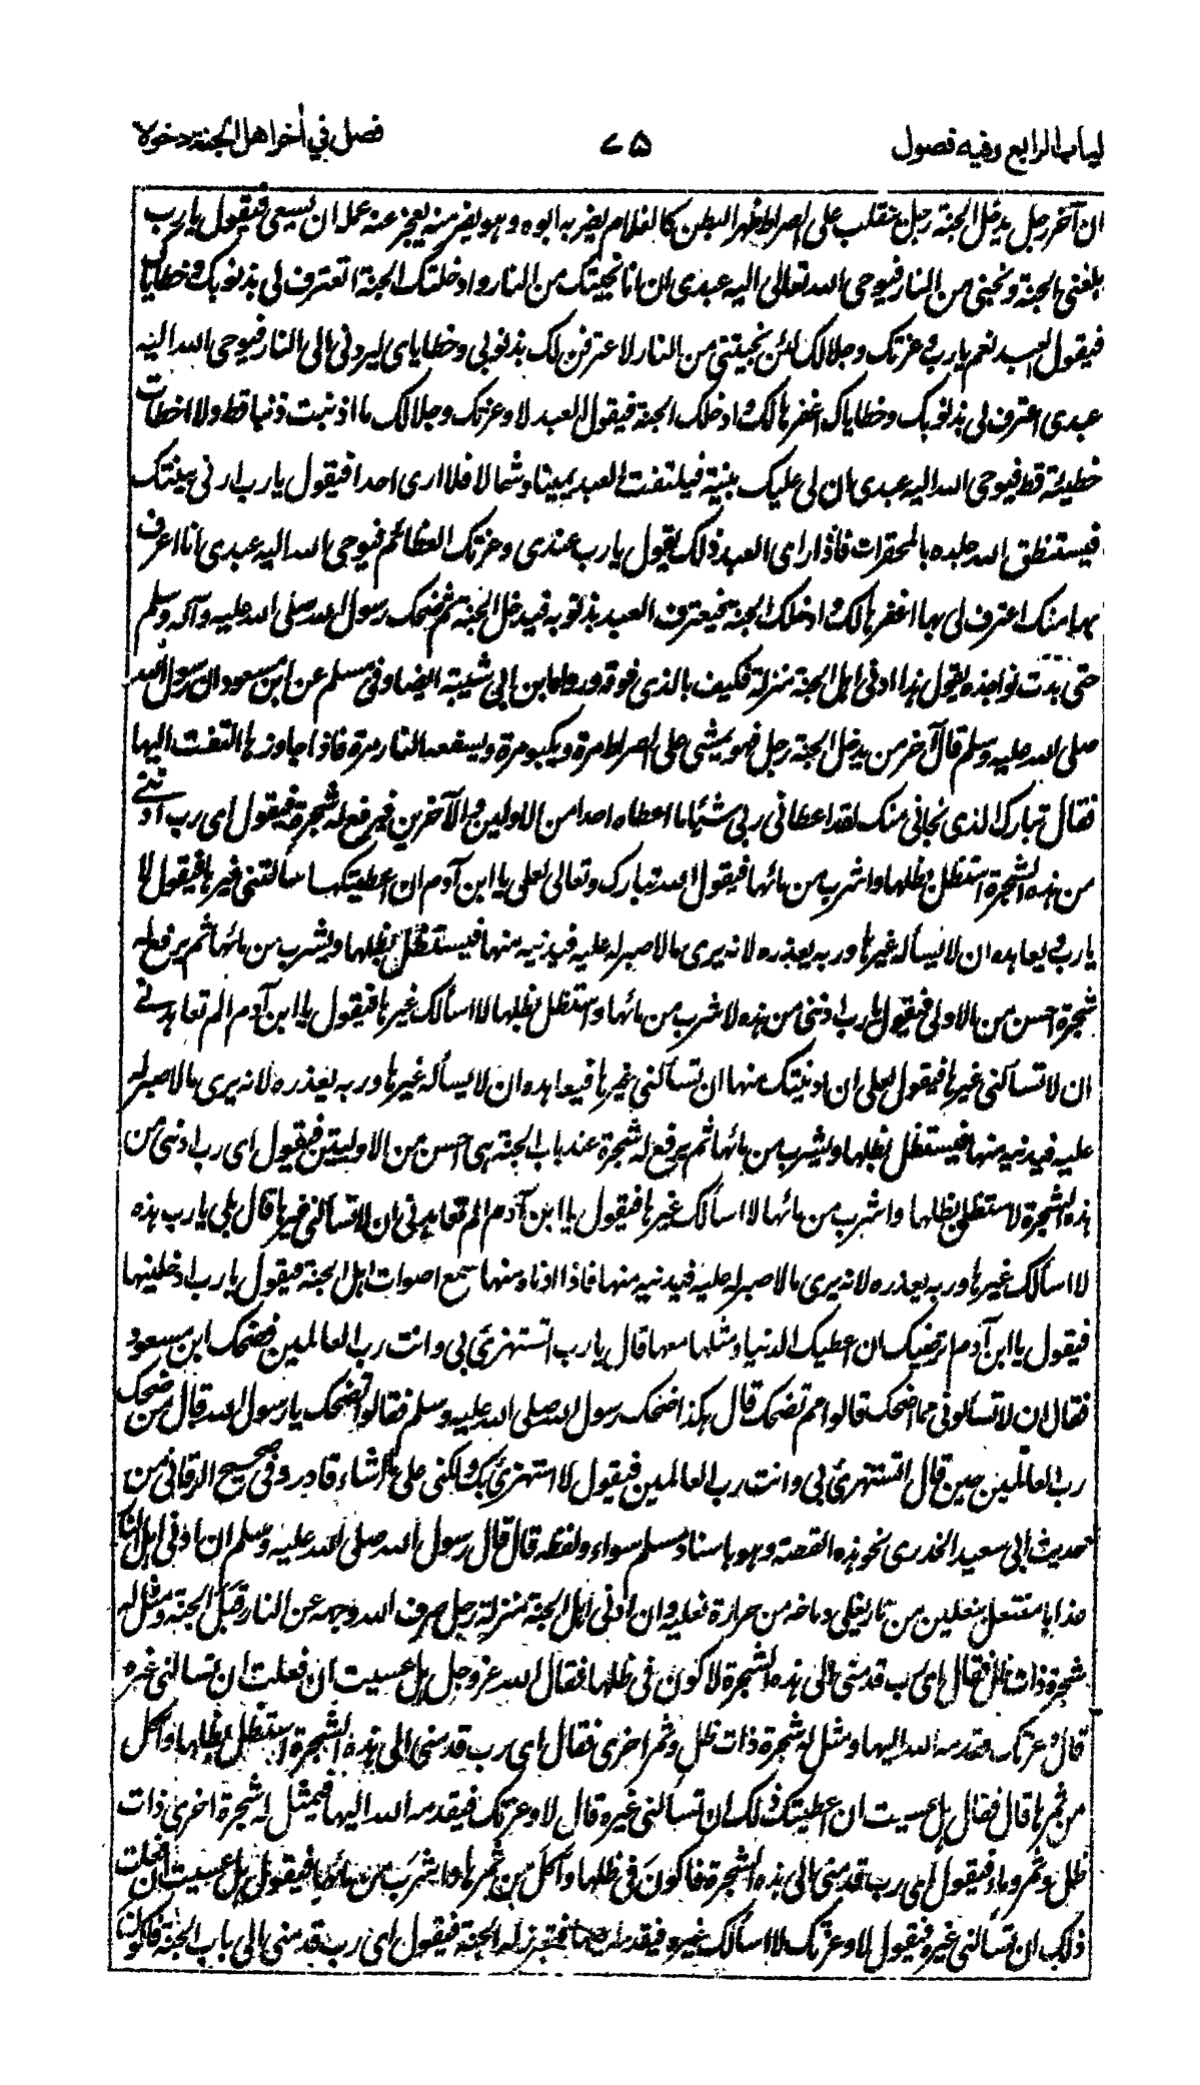 لباب الرابع وفيه فصول
٧٥
فصل في آخر اهل الجنة دخولا
ان آخر رجل يدخل الجنة رجل يتقلب على الصراط ظهرا لبطن كالغلام يضربه ابوه وهو يفر منه يعجز عنه عمله ان يسعى فيقول يا رب
بلغني الجنة ونجني من النار فيوحى الله تعالى اليه عبدى ان انا نجيتك من النار وادخلتك الجنة اتعترف لى بذنوبك وخطاياك
فيقول العبد نعم يا رب وعزتك وجلالك لئن نجيتنى من النار لاعترفن لك بذنوبى وخطاياى ليردنى الى النار فيوحى الله اليه
عبدى اعترف لى بذنوبك وخطاياك اغفرها لك وادخلك الجنة فيقول العبد لا وعزتك وجلالك ما اذنبت ذنبا قط ولا اخطأت
خطيئة قط فيوحى الله اليه عبدى ان لى عليك بينة فيلتفت العبد يمينا وشمالا فلا ارى احدا فيقول يا رب ارنى بينتك
فيستنطق الله جلده بالمحقرات فاذا راى العبد ذلك يقول يا رب عندى وعزتك العظائم فيوحى الله اليه عبدى انا اعرف
بها منك اعترف لى بها اغفرها لك وادخلك الجنة فيعترف العبد بذنوبه فيدخل الجنة ثم ضحك رسول الله صلى الله عليه وآله وسلم
حتى بدت نواجذه يقول هذا ادنى اهل الجنة منزلة فكيف بالذى فوقه ورواه ابن ابى شيبة ايضا وفى مسلم عن ابن مسعود ان رسول الله
صلى الله عليه وسلم قال آخر من يدخل الجنة رجل فهو يمشى على الصراط مرة ويكبو مرة ويسفعه النار مرة فاذا جاوزها التفت اليها
فقال تبارك الذى نجانى منك لقد اعطانى ربى شيئا ما اعطاه احدا من الاولين والآخرين فيرفع له شجرة فيقول اى رب ادننى
من هذه الشجرة استظل بظلها واشرب من مائها فيقول الله تبارك وتعالى لعلى يا ابن آدم ان اعطيتكها سألتنى غيرها فيقول لا
يا رب ويعاهده ان لا يسأله غيرها وربه يعذره لانه يرى ما لا صبر له عليه فيدنيه منها فيستظل بظلها ويشرب من مائها ثم يرفع له
شجرة احسن من الاولى فيقول يا رب ادننى من هذه لاشرب من مائها واستظل بظلها لا اسألك غيرها فيقول يا ابن آدم الم تعاهدنى
ان لا تسألنى غيرها فيقول لعلى ان ادنيتك منها ان تسألنى غيرها فيعاهده ان لا يسأله غيرها وربه يعذره لانه يرى ما لا صبر له
عليه فيدنيه منها فيستظل بظلها ويشرب من مائها ثم يرفع له شجرة عند باب الجنة هى احسن من الاوليين فيقول اى رب ادننى من
هذه الشجرة لاستظل بظلها واشرب من مائها لا اسألك غيرها فيقول يا ابن آدم الم تعاهدنى ان لا تسألنى غيرها قال بلى يا رب هذه
لا اسألك غيرها وربه يعذره لانه يرى ما لا صبر له عليه فيدنيه منها فاذا ادناه منها سمع اصوات اهل الجنة فيقول يا رب ادخلنيها
فيقول يا ابن آدم ايرضيك ان اعطيك الدنيا ومثلها معها قال يا رب اتستهزئ بى وانت رب العالمين فضحك ابن مسعود
فقال ان لا تسألونى مما اضحك قالوا مم تضحك قال هكذا ضحك رسول الله صلى الله عليه وسلم فقالوا مم تضحك يا رسول الله قال من ضحك
رب العالمين حين قال اتستهزئ بى وانت رب العالمين فيقول لا استهزئ بك ولكنى على ما اشاء قادر وفى صحيح البرقانى من
حديث ابى سعيد الخدرى نحو هذه القصة وهو باسناد مسلم سواء ولفظه قال قال رسول الله صلى الله عليه وسلم ان ادنى اهل النار
عذابا منتعل بنعلين من نار يغلى دماغه من حرارة نعليه وان ادنى اهل الجنة منزلة رجل صرف الله وجهه عن النار قبل الجنة ومثل له
شجرة ذات ظل فقال اى رب قدمنى الى هذه الشجرة لاكون فى ظلها فقال الله عز وجل هل عسيت ان فعلت ان تسألنى غيره
قال لا وعزتك فقدمه الله اليها ومثل له شجرة ذات ظل وثمر اخرى فقال اى رب قدمنى الى هذه الشجرة استظل بظلها وآكل
من ثمرها قال فقال هل عسيت ان اعطيتك ذلك ان تسألنى غيره قال لا وعزتك فيقدمه الله اليها فيمثل له شجرة اخرى ذات
ظل وثمر وماء فيقول اى رب قدمنى الى هذه الشجرة فاكون فى ظلها وآكل من ثمرها واشرب من مائها فيقول هل عسيت ان فعلت
ذلك ان تسألنى غيره فيقول لا وعزتك لا اسألك غيره فيقدمه الله اليها فتبرز له الجنة فيقول اى رب قدمنى الى باب الجنة فاكون